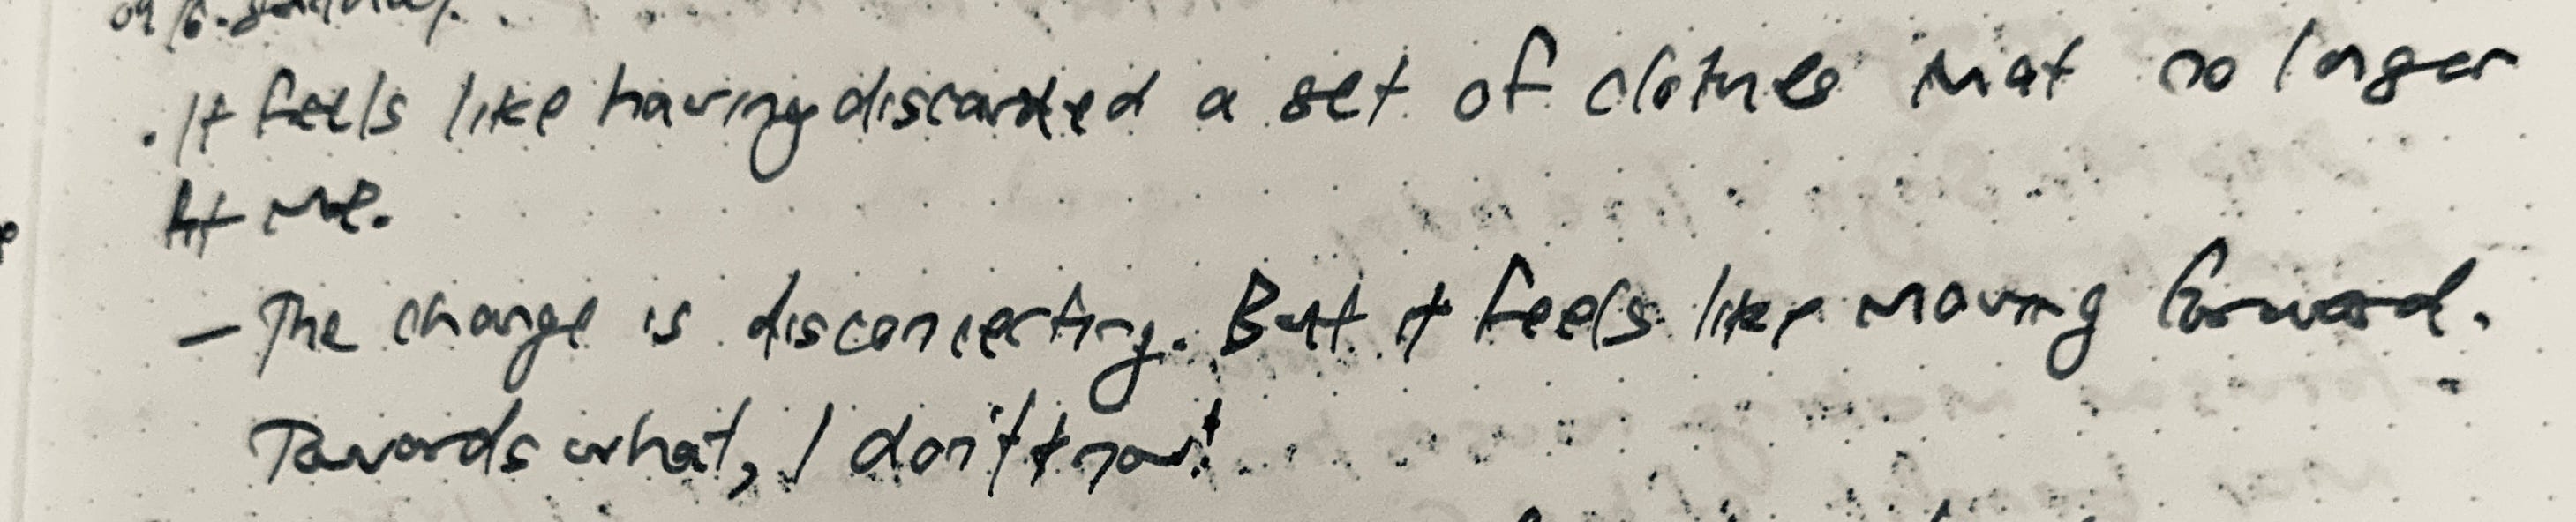 . It feels like having discarded a set of clothes that no longer
fit me.
— The change is disconcerting. But it feels like moving forward.
Towards what, I don't know!